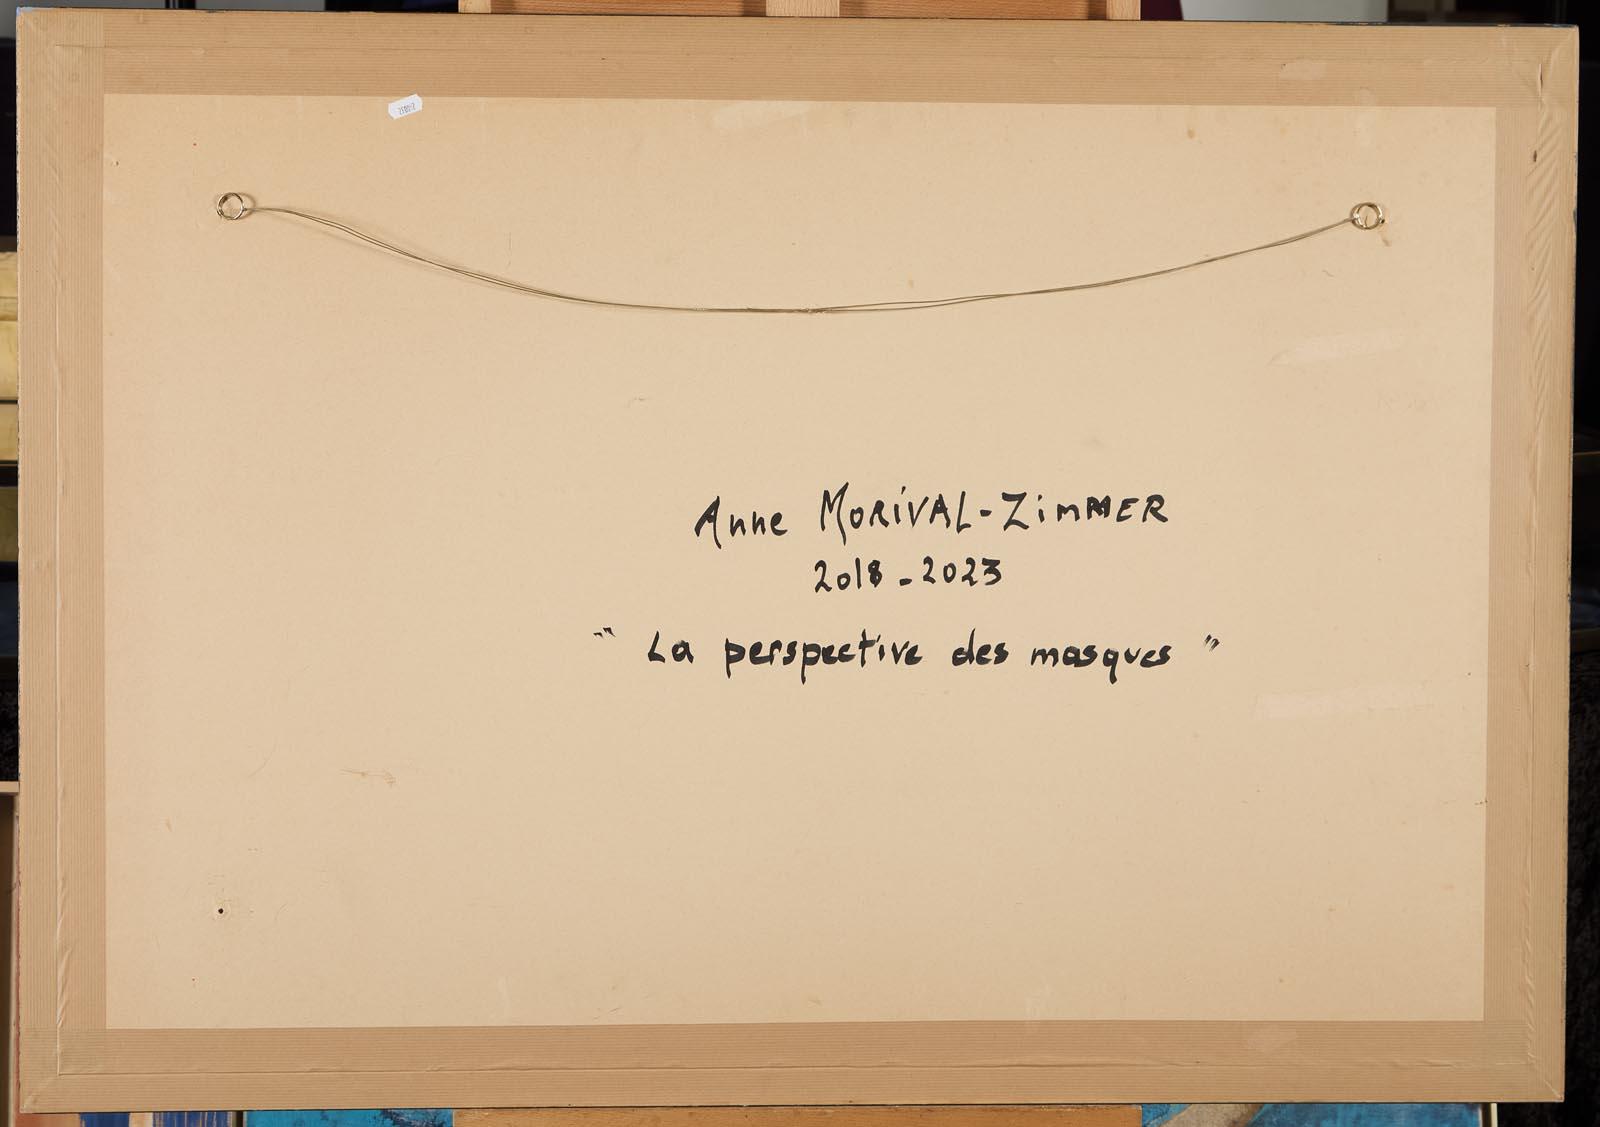 Anne MORiVAL-ZimMER
2018-2023
" La perspective des masques "